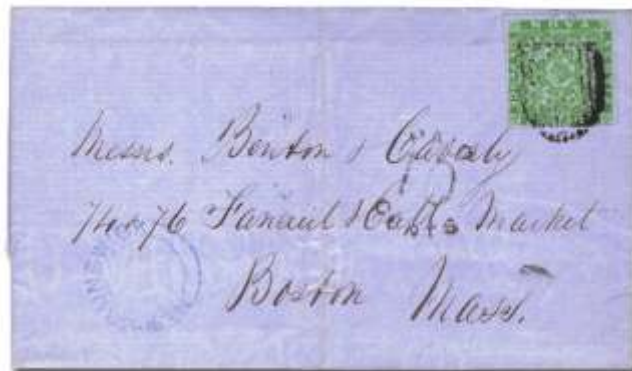 Messrs. Benton & Caverly
74 & 76 Faneuil Hall Market
Boston Mass.